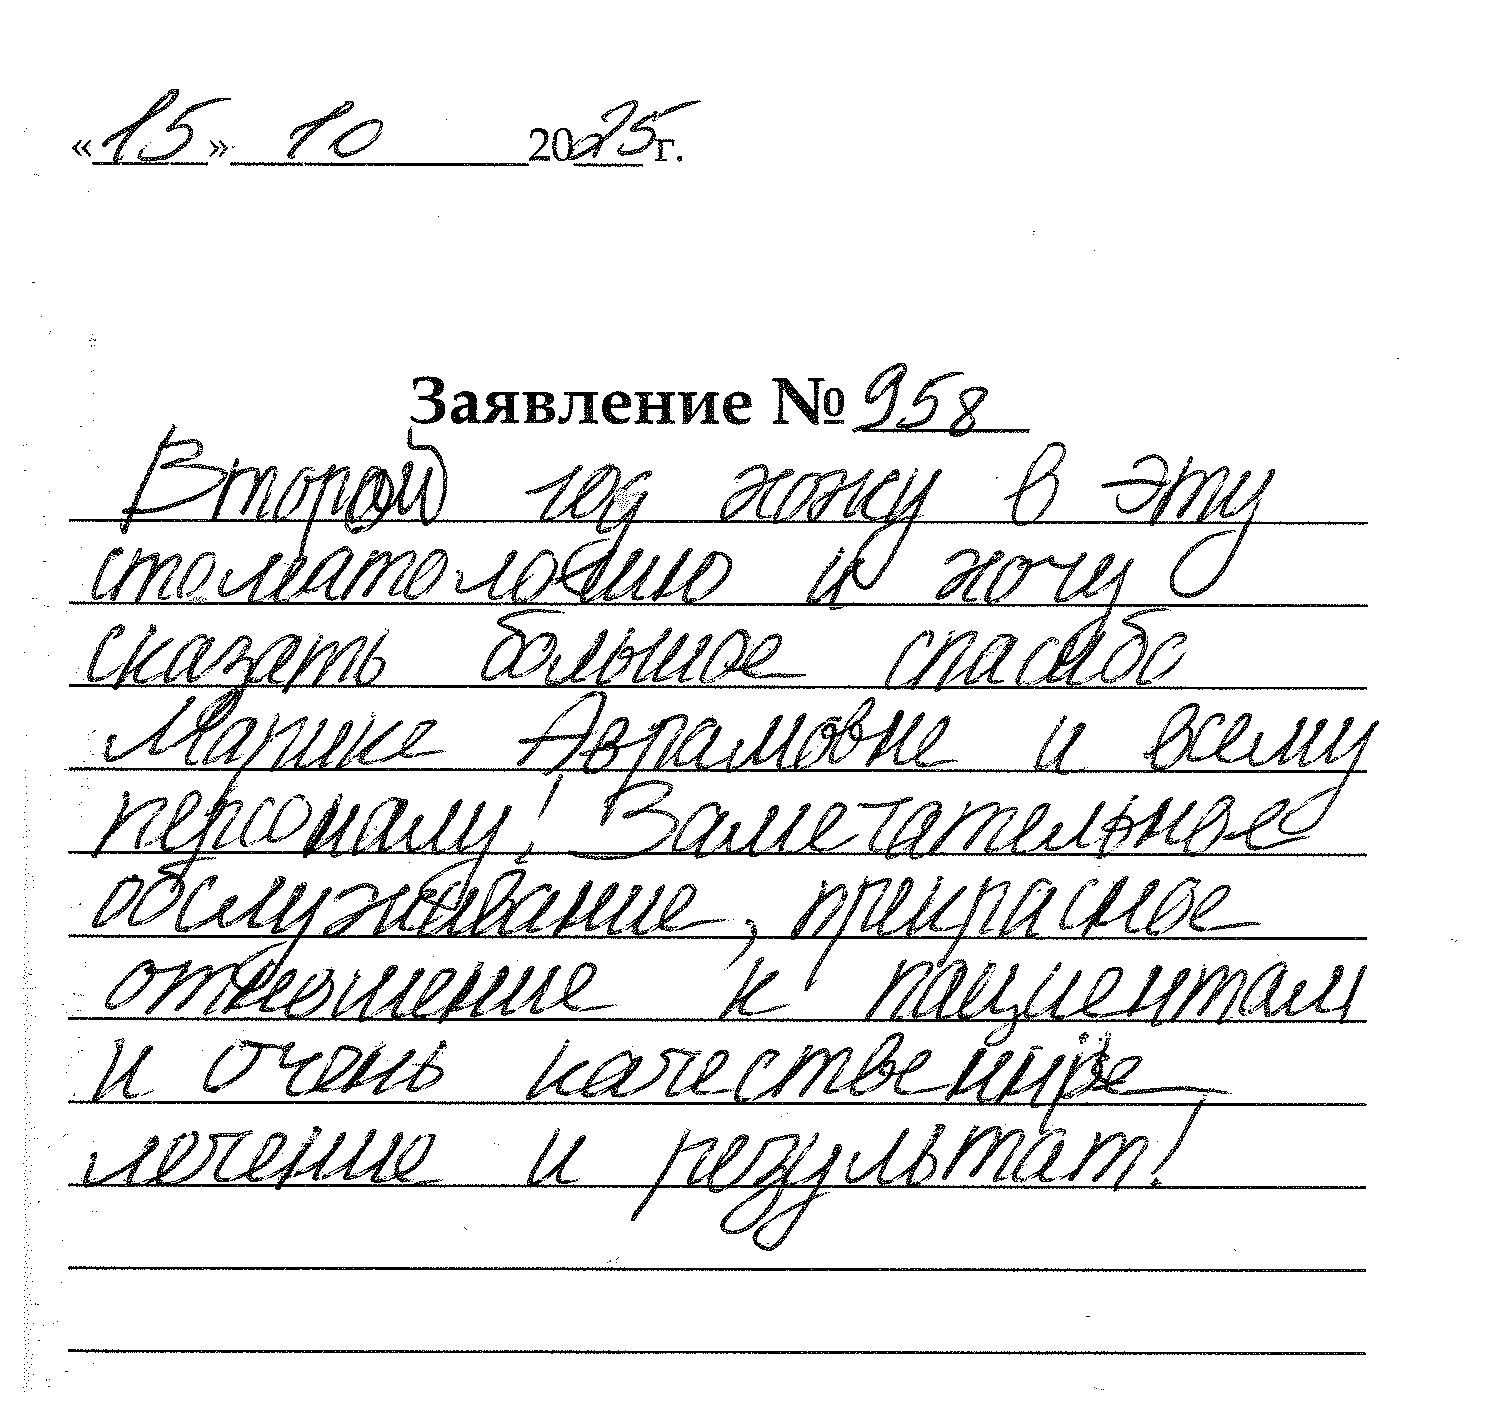 «15» 10 2025 г.
Заявление № 958
Второй год хожу в эту
стоматологию и хочу
сказать большое спасибо
Марике Аврамовне и всему
персоналу! Замечательное
обслуживание, прекрасное
отношение к пациентам
и очень качественное
лечение и результат!